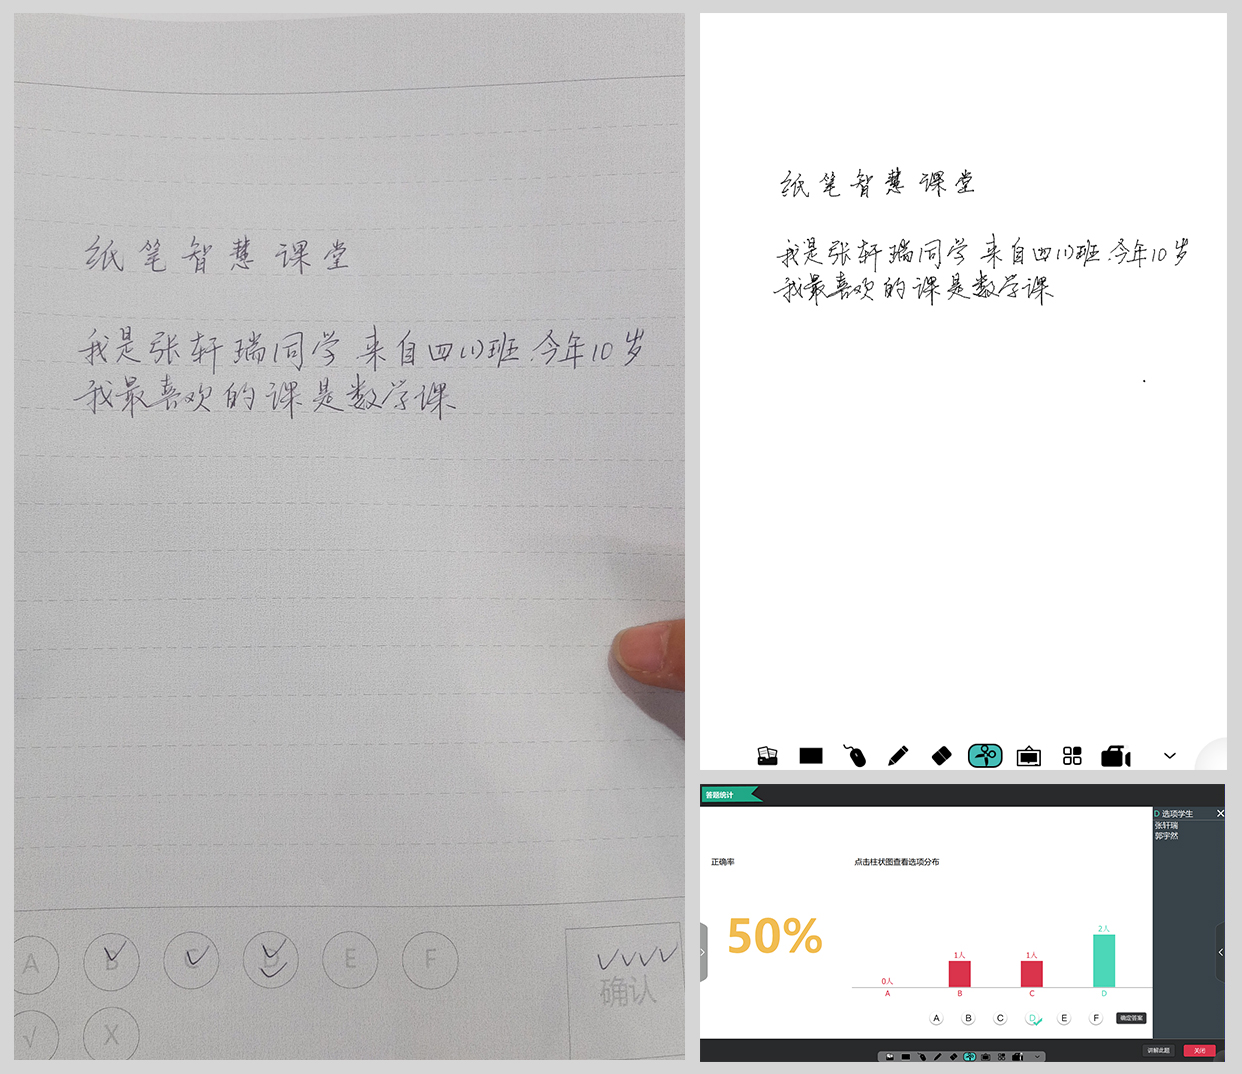 纸笔智慧课堂
我是张轩瑞同学 来自四(1)班.今年10岁
我最喜欢的课是数学课
A B C D E F
确认
√ X
纸笔智慧课堂
我是张轩瑞同学 来自四(1)班.今年10岁
我最喜欢的课是数学课
答题统计
D 选项学生
张轩瑞
郭宇然
正确率
点击柱状图查看选项分布
50%
0人 1人 1人 2人
A B C D
A B C D E F 确定答案
讲解此题 关闭